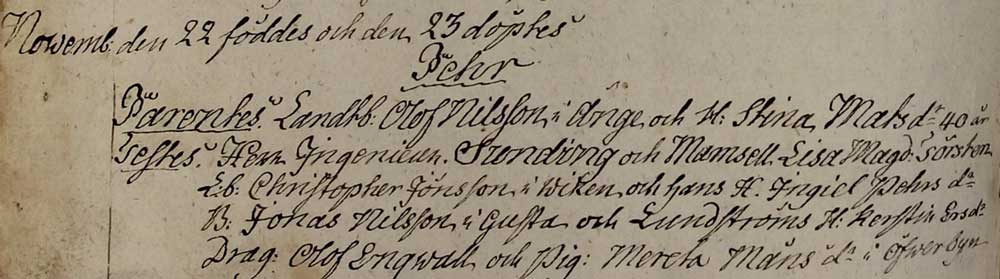 Novemb: den 22 föddes och den 23 döptes
Pehr
Parentes. Landtb: Olof Nilsson i Ånge och H: Stina Mats dr 40 år
Testes. Herr Ingenieur. Sundin och Mamsell Lisa Magd: Törsten
L:b: Christopher Jönsson i Wiken och hans H. Ingiel Pehrs da
B: Jonas Nilsson i Gusta och Lundströms H: Kerstin Ersda
Drag: Olof Engwall och Pig: Mereta Måns da i Öfwerbyn